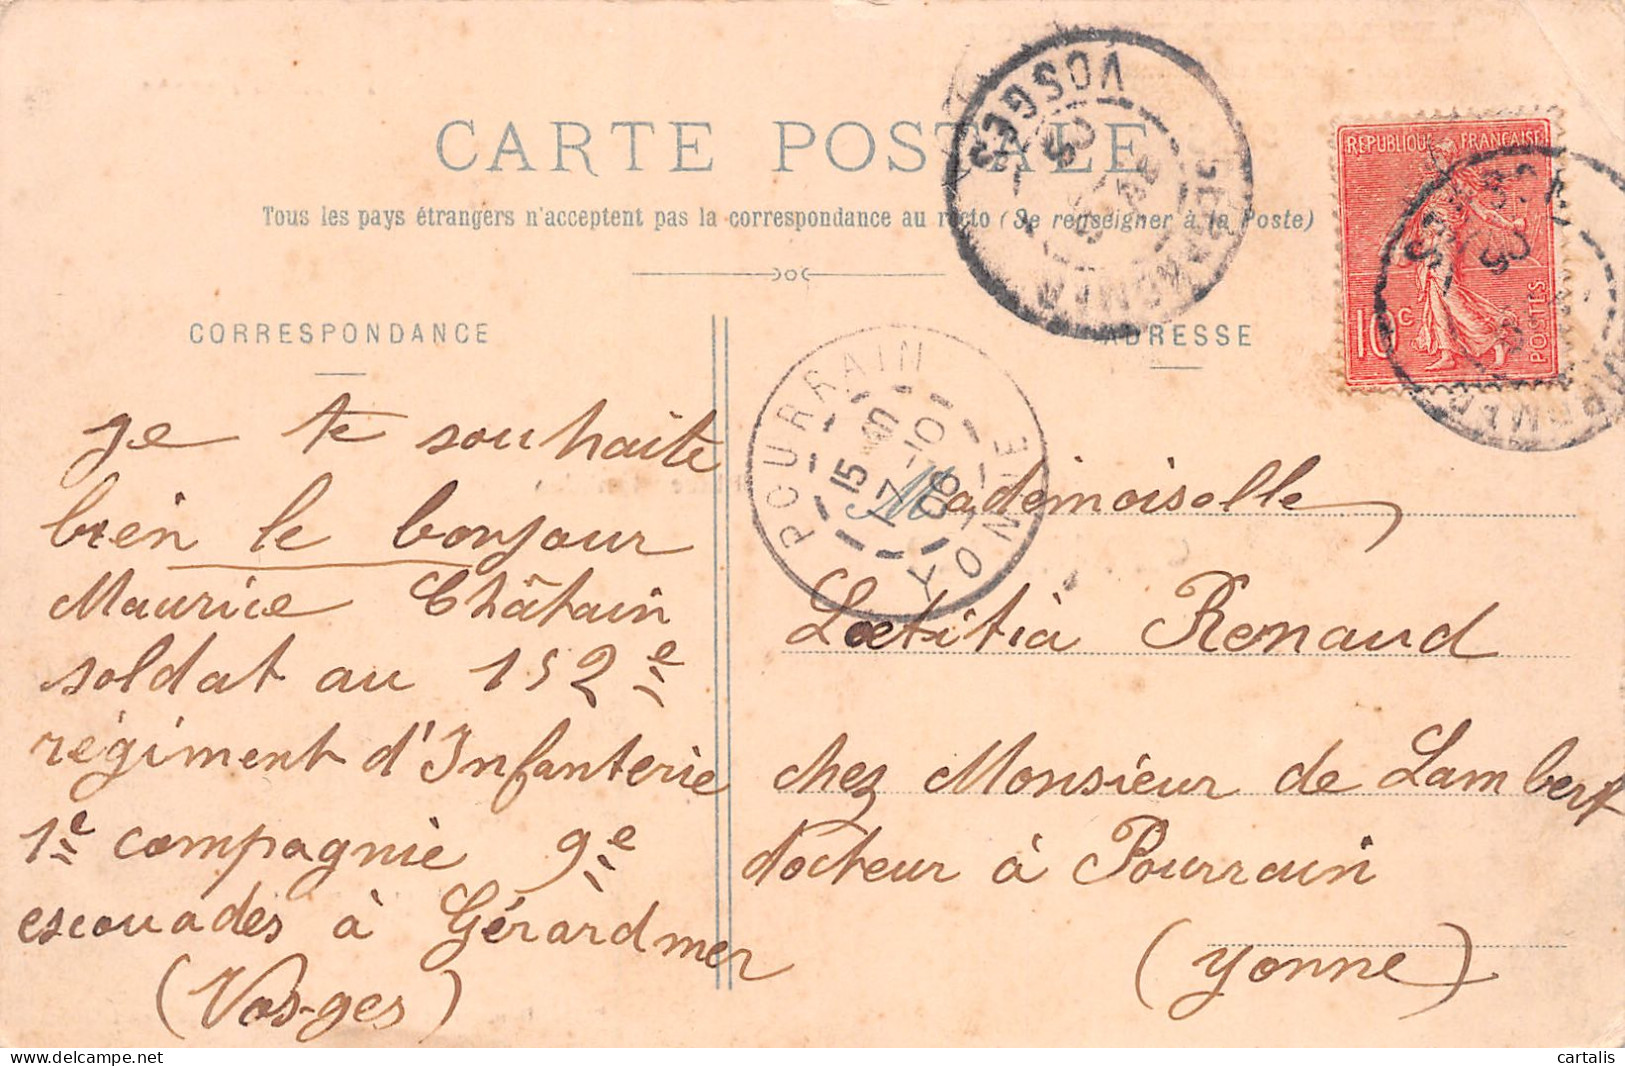 CARTE POSTALE
Tous les pays étrangers n'acceptent pas la correspondance au recto (Se renseigner à la Poste)
CORRESPONDANCE
je te souhaite
bien le bonjour
Maurice Châtain
soldat au 152e
régiment d'Infanterie
1e compagnie 9e
escouades à Gérardmer
(Vos-ges)
ADRESSE
Mademoiselle
Lœtitià Renaud
chez Monsieur de Lambert
docteur à Pourrain
(Yonne)
REPUBLIQUE FRANÇAISE
10c
POSTES
VOSGES
GERARDMER
POURRAIN
15
17-10
06
YONNE
cartalis